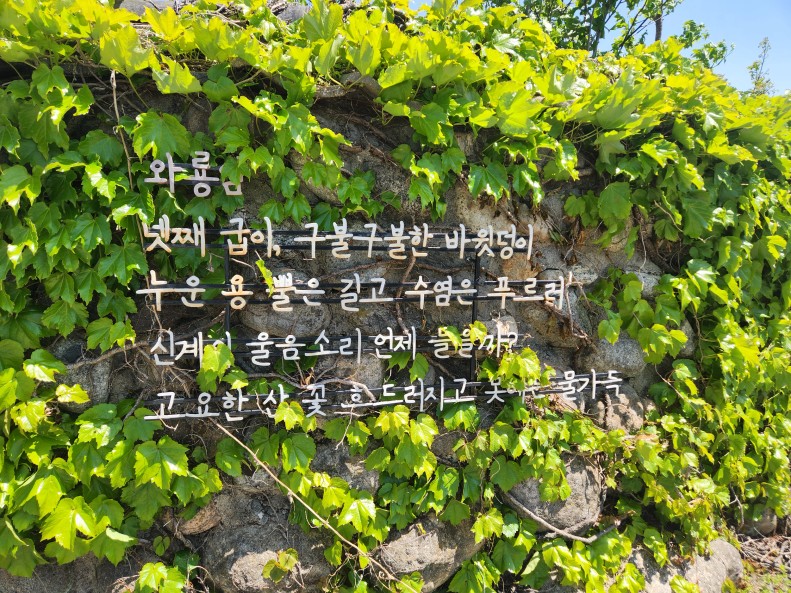 와룡담
넷째 굽이, 구불구불한 바윗덩이
누운 용 뿔은 길고 수염은 푸르러
신계의 울음소리 언제 들을까?
고요한 산 꽃 흐드러지고 못에는 물가득